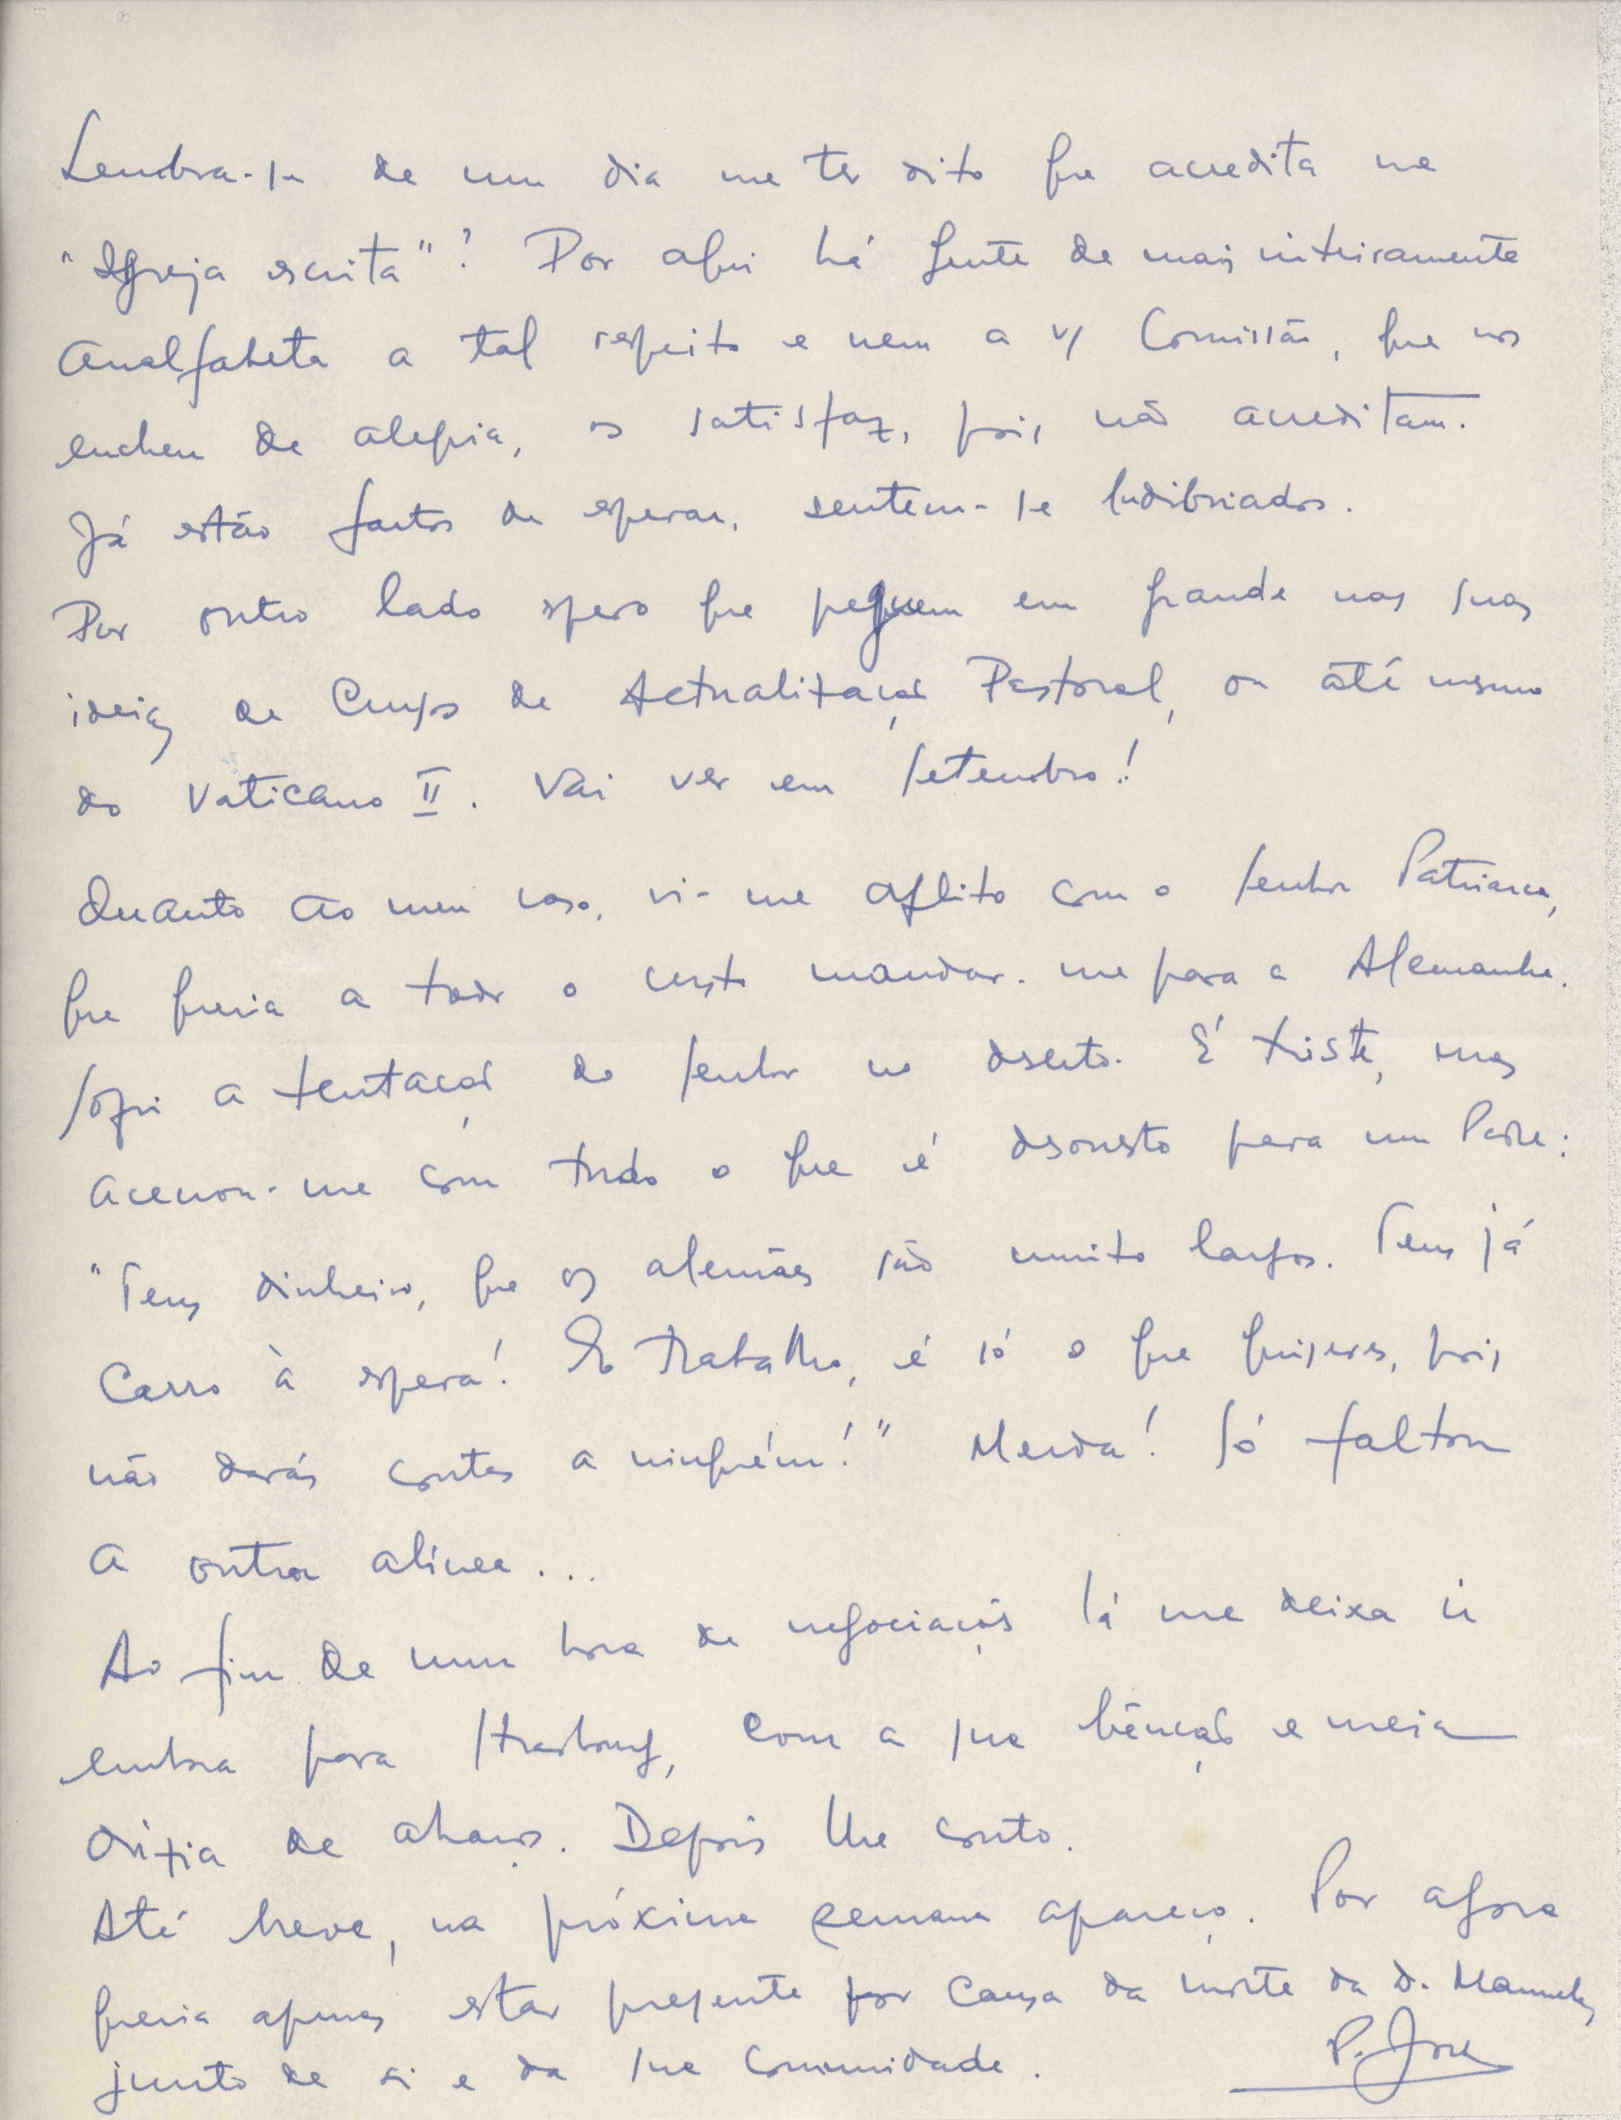 Lembra-se de um dia me ter dito que acredita na
"Igreja escrita"? Por aqui há gente de mais inteiramente
analfabeta a tal respeito e nem a v/ Comissão, que nos
encheu de alegria, os satisfaz, pois não acreditam.
Já estão fartos de esperar, sentem-se ludibriados.
Por outro lado espero que peguem em grande nas suas
ideias de Cursos de Actualização Pastoral, ou até mesmo
do Vaticano II. Vai ver em Setembro!
Quanto ao meu caso, vi-me aflito com o Senhor Patriarca,
que queria a todo o custo mandar-me para a Alemanha.
Sofri a tentação do Senhor no deserto. É triste, mas
acenou-me com tudo o que é desonesto para um Padre:
"Tens dinheiro, que os alemães são muito largos. Tens já
carro à espera! E trabalho, é só o que quiseres, pois
não darás contas a ninguém!" Merda! Só faltou
a outra alínea...
Ao fim de uma hora de negociações lá me deixa ir
embora para Strasbourg, com a sua bênção e meia
dúzia de abraços. Depois lhe conto.
Até breve, na próxima semana apareço. Por agora
queria apenas estar presente por causa da morte da D. Manuela,
junto de si e da sua comunidade.
P. José